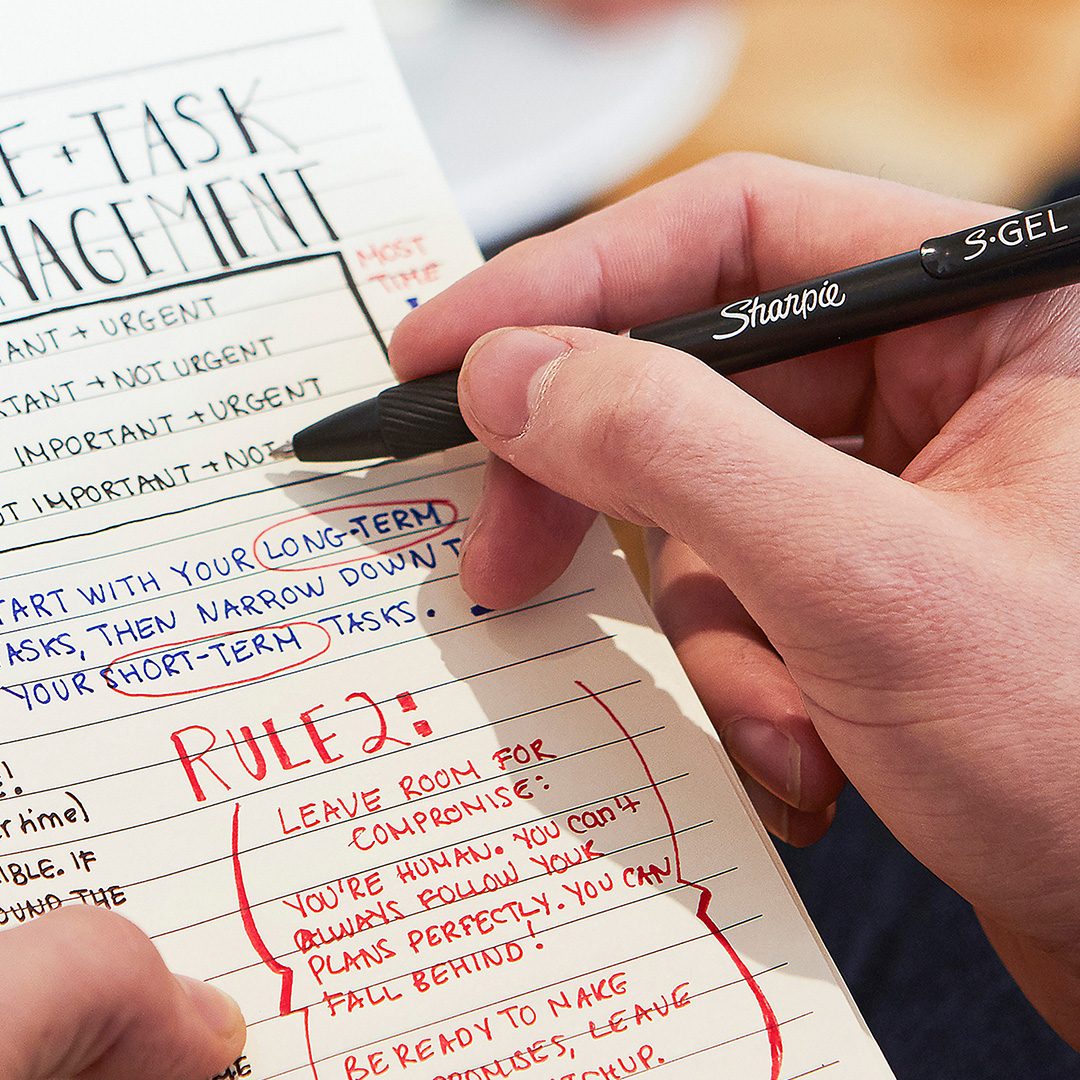 E + TASK
NAGEMENT
MOST
TIME
ANT + URGENT
TANT + NOT URGENT
IMPORTANT + URGENT
OT IMPORTANT + NOT
TART WITH YOUR LONG-TERM
ASKS, THEN NARROW DOWN T
YOUR SHORT-TERM TASKS.
RULE 2:
LEAVE ROOM FOR
COMPROMISE:
YOU'RE HUMAN. YOU can't
ALWAYS FOLLOW YOUR
PLANS PERFECTLY. YOU CAN
FALL BEHIND!
BE READY TO MAKE
PROMISES, LEAVE
TCHUP.
E!
er time)
IBLE. IF
OUND THE
ME
Sharpie
S·GEL